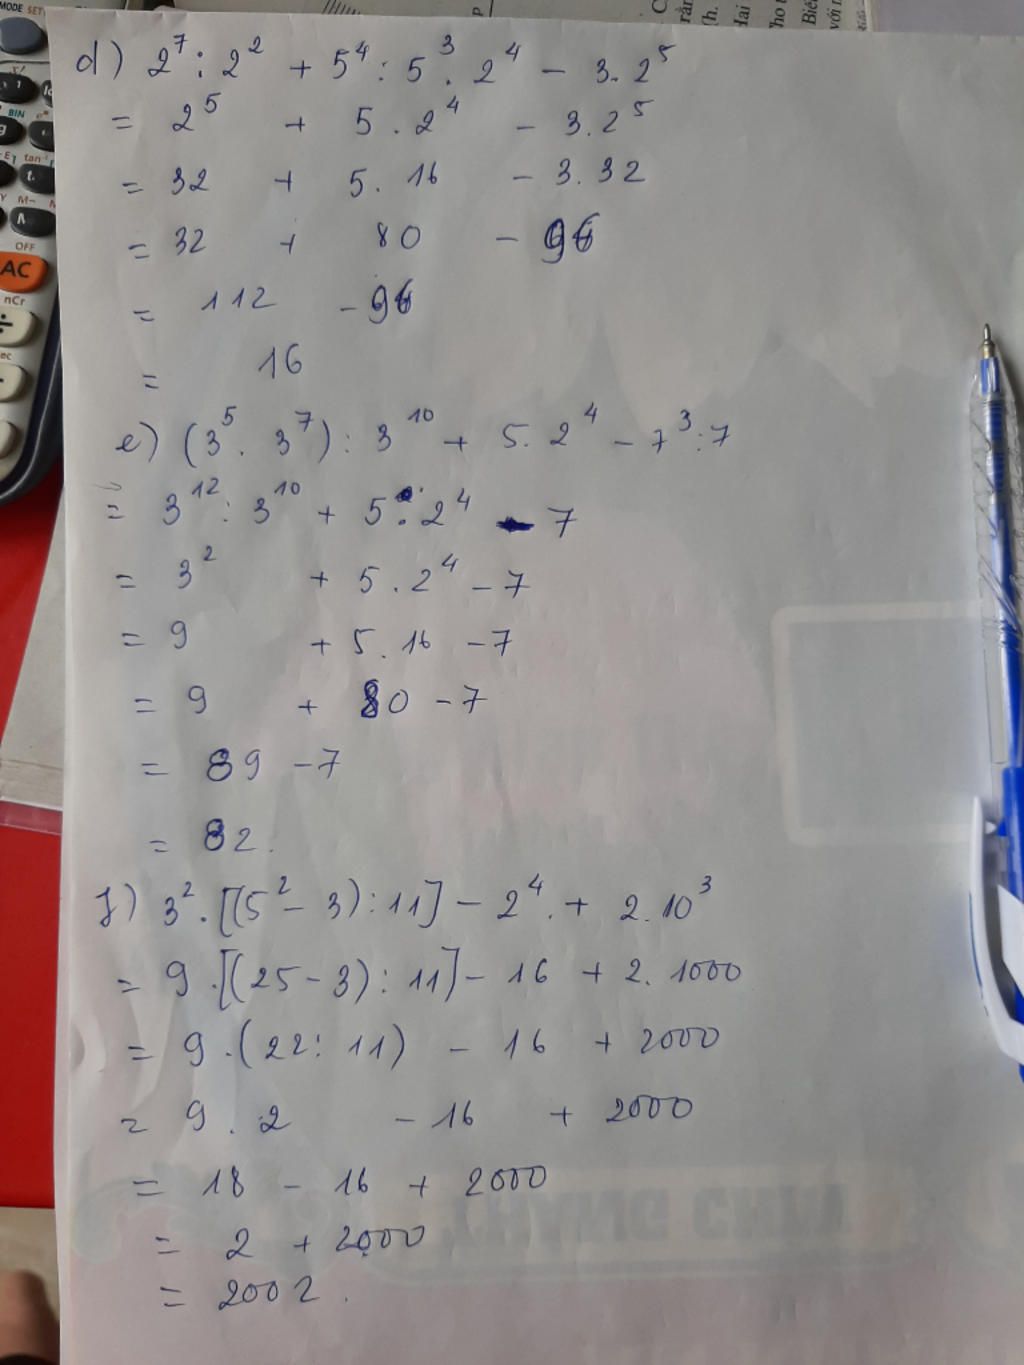 d) 2⁷ : 2² + 5⁴ : 5³ . 2⁴ - 3. 2⁵
= 2⁵ + 5 . 2⁴ - 3.2⁵
= 32 + 5. 16 - 3.32
= 32 + 80 - 96
= 112 - 96
= 16
e) (3⁵ . 3⁷) : 3¹⁰ + 5. 2⁴ - 7³ : 7
= 3¹² : 3¹⁰ + 5 . 2⁴ - 7
= 3² + 5 . 2⁴ - 7
= 9 + 5. 16 - 7
= 9 + 80 - 7
= 89 - 7
= 82.
f) 3² . [(5² - 3) : 11] - 2⁴. + 2. 10³
= 9 . [(25 - 3) : 11] - 16 + 2. 1000
= 9 . (22 : 11) - 16 + 2000
= 9 . 2 - 16 + 2000
= 18 - 16 + 2000
= 2 + 2000
= 2002.
MODE
BIN
tan⁻¹
OFF
AC
nCr
÷